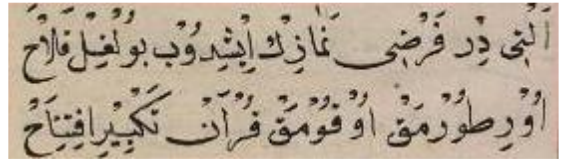 اَلْتِى دِرْ فَرْضِى نَمَازِكْ اِيشِدُوبْ بُولْغِلْ فَلَاحْ
اُورِ طُورْمَقْ اُوقُومَقْ قُرْآنْ تَكْبِيرِ افْتِتَاحْ